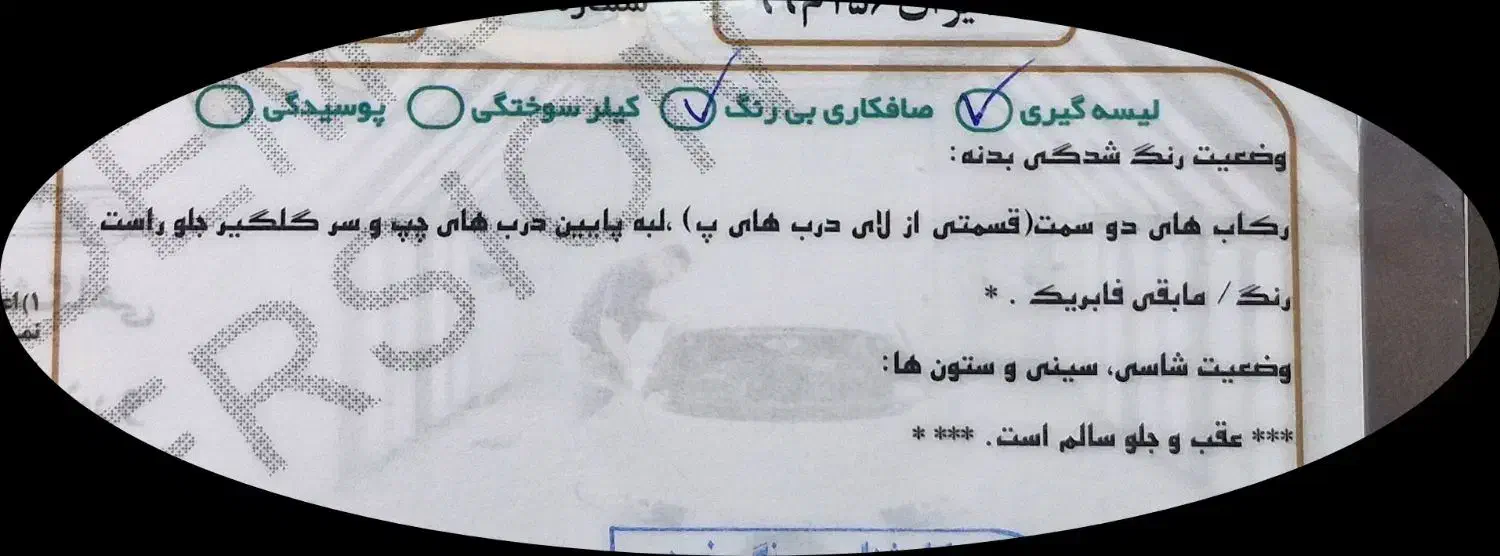 لیسه گیری صافکاری بی رنگ کیلر سوختگی پوسیدگی
وضعیت رنگ شدگی بدنه:
رکاب های دو سمت(قسمتی از لای درب های پ) ،لبه پایین درب های چپ و سر گلگیر جلو راست
رنگ / مابقی فابریک . *
وضعیت شاسی، سینی و ستون ها:
*** عقب و جلو سالم است. *** *
DEMO
VERSION